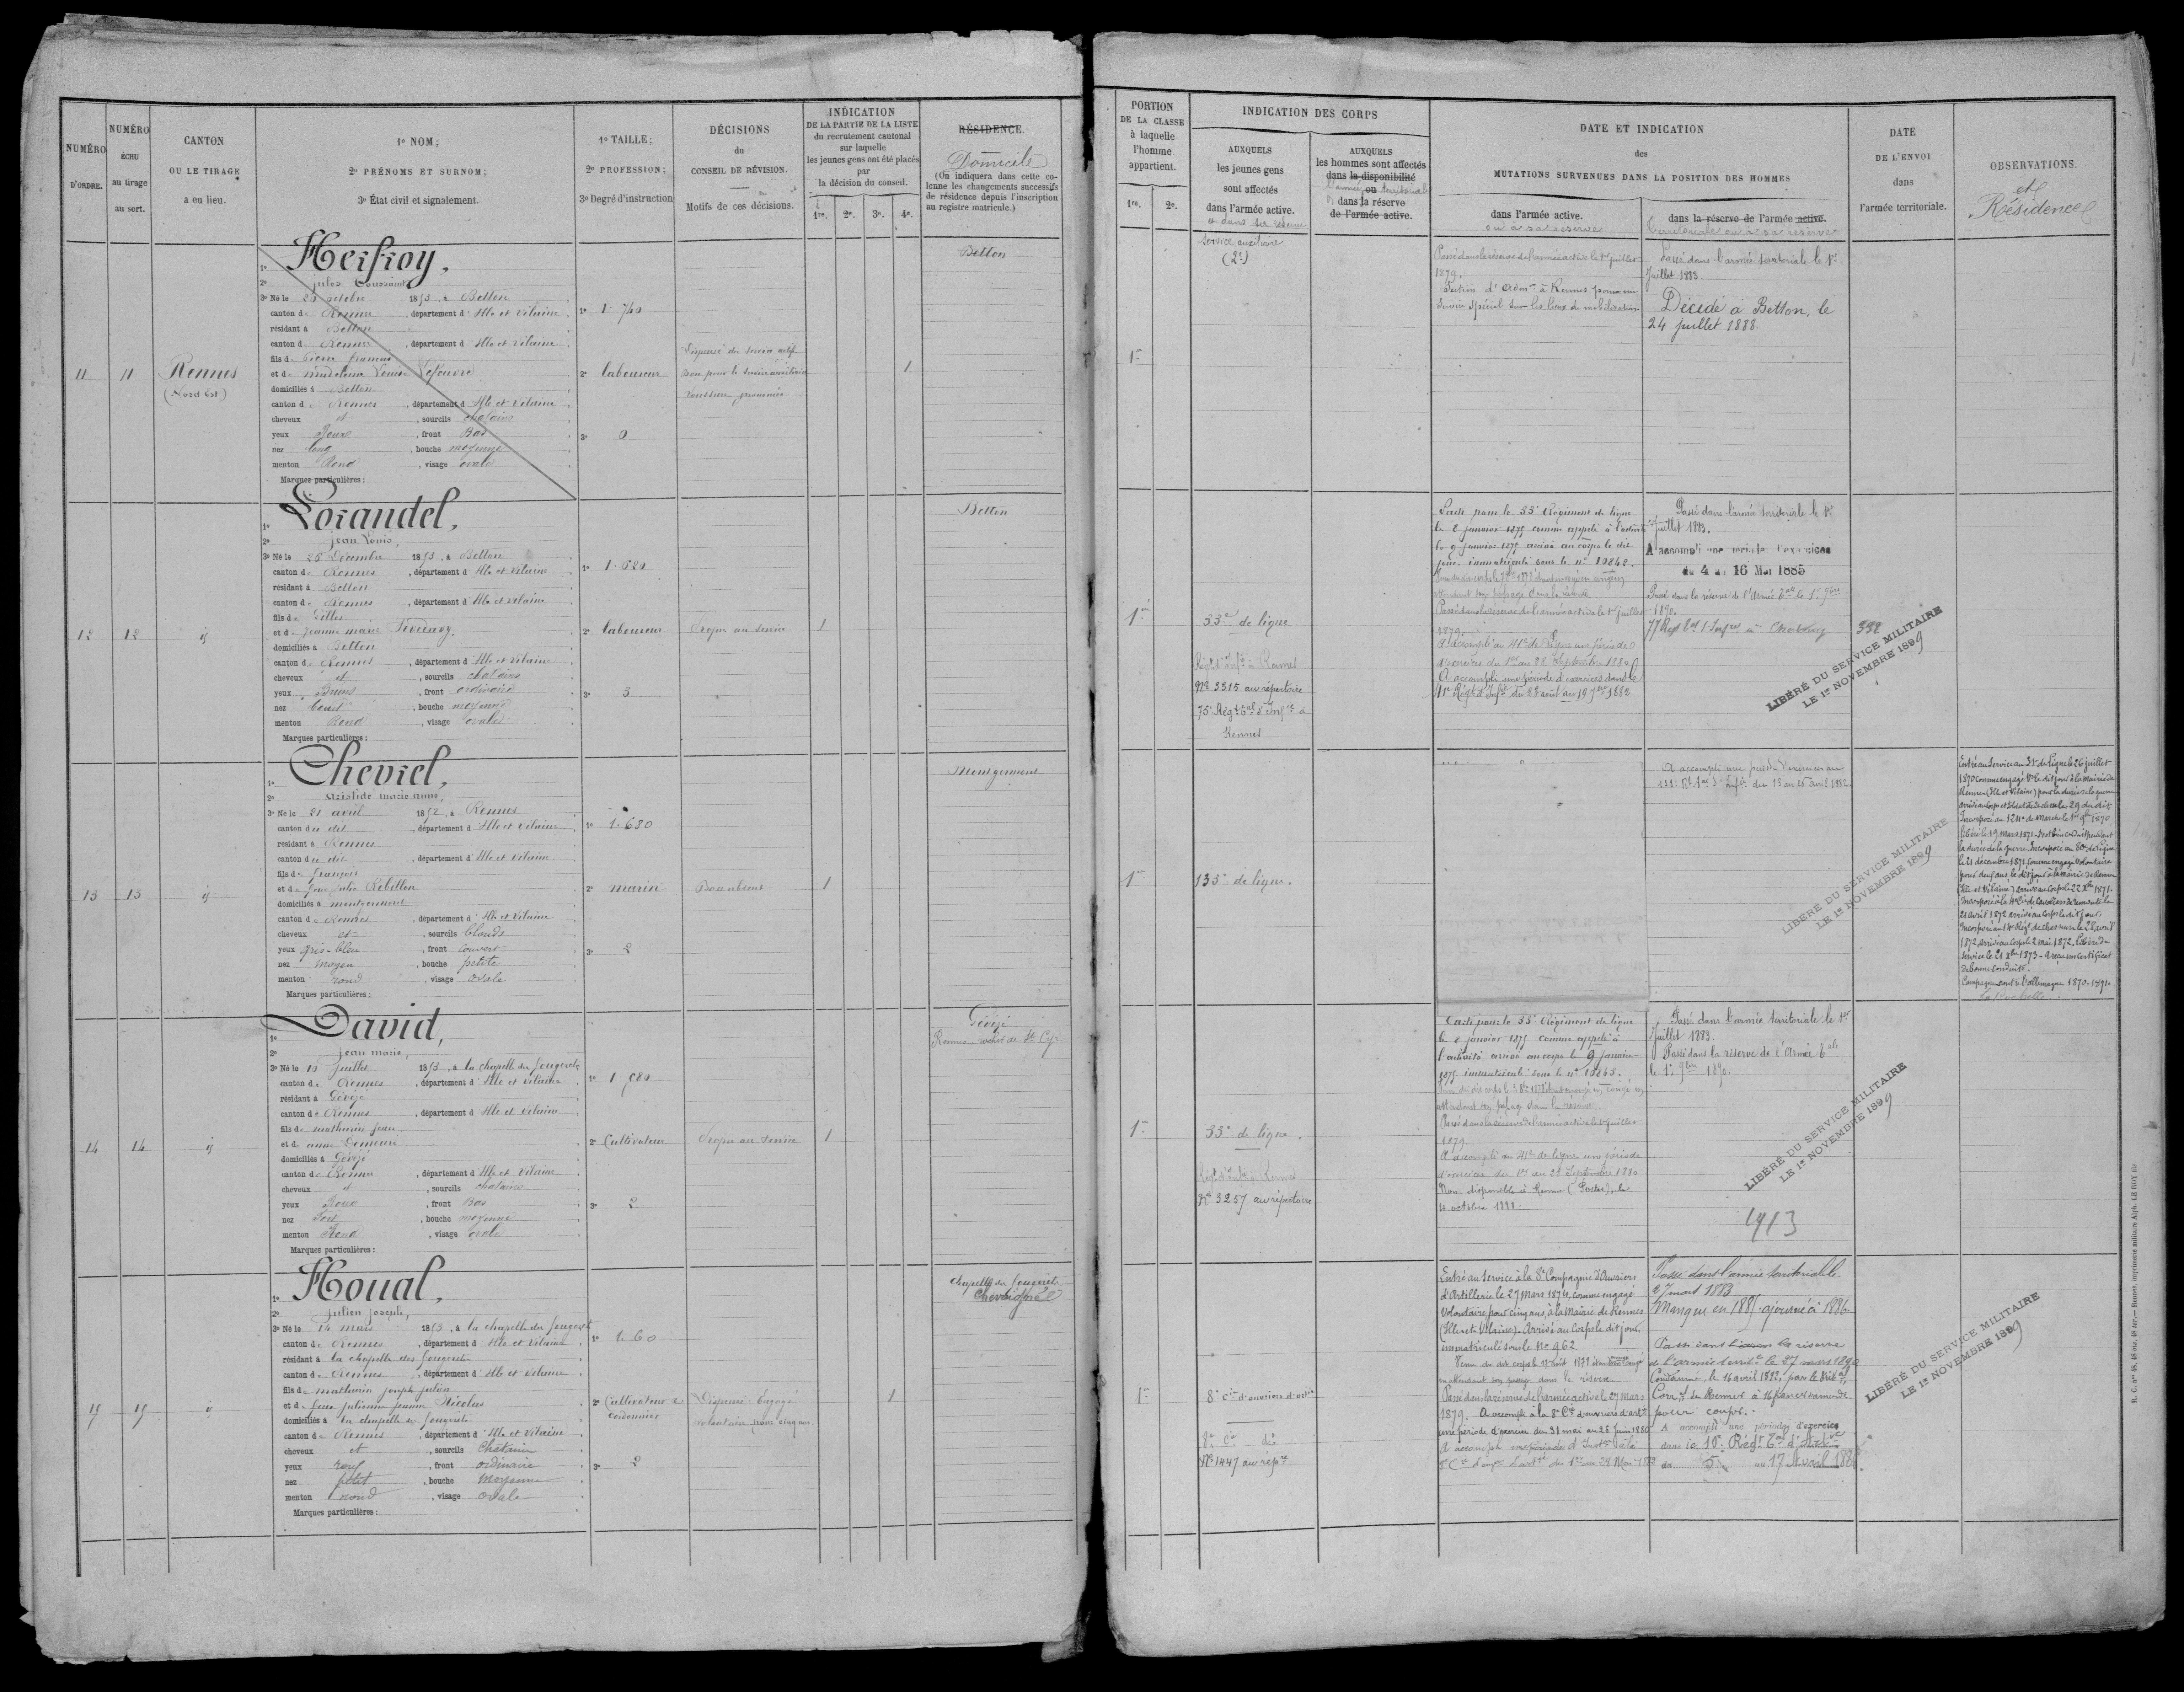 NUMÉRO
D'ORDRE.
NUMÉRO
ÉCHU
au tirage
au sort.
CANTON
OU LE TIRAGE
a eu lieu.
1º NOM;
2º PRÉNOMS ET SURNOM;
3º État civil et signalement.
1º TAILLE;
2º PROFESSION;
3º Degré d'instruction
DÉCISIONS
du
CONSEIL DE RÉVISION.
Motifs de ces décisions.
INDICATION
DE LA PARTIE DE LA LISTE
du recrutement cantonal
sur laquelle
les jeunes gens ont été placés
par
la décision du conseil.
1re. 2e. 3e. 4e.
RÉSIDENCE.
Domicile
(On indiquera dans cette co-
lonne les changements successifs
de résidence depuis l'inscription
au registre matricule.)
11
11
Rennes
(Nord Est)
1º Herfroy,
2º Jules Toussaint
3º Né le 29 octobre 1853, à Betton
canton de Rennes, département d'Ille et Vilaine
résidant à Betton
canton de Rennes, département d'Ille et Vilaine
fils de Pierre François
et de Madeleine Louise Lefeuvre
domiciliés à Betton
canton de Rennes, département d'Ille et Vilaine
cheveux et, sourcils chatains
yeux Roux, front Bas
nez long, bouche moyenne
menton Rond, visage ovale
Marques particulières:
1º 1.740
2º laboureur
3º 0
Dispensé du service actif
Bon pour le service auxiliaire
1
Betton
12
12
id
1º Lorandel,
2º Jean Louis,
3º Né le 25 Décembre 1853, à Betton
canton de Rennes, département d'Ille et Vilaine
résidant à Betton
canton de Rennes, département d'Ille et Vilaine
fils de Gilles
et de Jeanne Marie
domiciliés à Betton
canton de Rennes, département d'Ille et Vilaine
cheveux et, sourcils chatains
yeux, front ordinaire
nez Court, bouche moyenne
menton Rond, visage ovale
Marques particulières:
1º 1.620
2º laboureur
3º 3
Propre au service
1
Betton
13
13
id
1º Chevrel,
2º Aristide Marie Anne,
3º Né le 21 avril 1852, à Rennes
canton du dit, département d'Ille et Vilaine
résidant à Rennes
canton du dit, département d'Ille et Vilaine
fils de François
et de feue Julie Rebillon
domiciliés à Montgermont
canton de Rennes, département d'Ille et Vilaine
cheveux et, sourcils blonds
yeux gris-bleu, front couvert
nez moyen, bouche petite
menton rond, visage ovale
Marques particulières:
1º 1.680
2º marin
3º 2
Bon absent
1
Montgermont
14
14
id
1º David,
2º Jean Marie,
3º Né le 10 Juillet 1853, à la chapelle des fougeretz
canton de Rennes, département d'Ille et Vilaine
résidant à Gévezé
canton de Rennes, département d'Ille et Vilaine
fils de Mathurin Jean
et de Anne
domiciliés à Gévezé
canton de Rennes, département d'Ille et Vilaine
cheveux et, sourcils chatains
yeux Roux, front Bas
nez Fort, bouche moyenne
menton Rond, visage ovale
Marques particulières:
1º 1.580
2º Cultivateur
3º 2
Propre au service
1
Gévezé
Rennes
15
15
id
1º Houal,
2º Julien Joseph,
3º Né le 14 mars 1853, à la chapelle des fougeretz
canton de Rennes, département d'Ille et Vilaine
résidant à la chapelle des fougeretz
canton de Rennes, département d'Ille et Vilaine
fils de Mathurin Joseph Julien
et de feue Julienne Jeanne Nicolas
domiciliés à la chapelle des fougeretz
canton de Rennes, département d'Ille et Vilaine
cheveux et, sourcils Chatain
yeux roux, front ordinaire
nez petit, bouche Moyenne
menton rond, visage ovale
Marques particulières:
1º 1.60
2º Cultivateur
Cordonnier
3º 2
Dispensé Engagé
volontaire pour cinq ans
1
Chapelle des fougeretz
Chevaigné
PORTION
DE LA CLASSE
à laquelle
l'homme
appartient.
1re. 2e.
INDICATION DES CORPS
AUXQUELS
les jeunes gens
sont affectés
dans l'armée active.
ou dans sa réserve
AUXQUELS
les hommes sont affectés
dans la disponibilité
ou
l'armée territoriale
dans la réserve
de l'armée active.
DATE ET INDICATION
des
MUTATIONS SURVENUES DANS LA POSITION DES HOMMES
dans l'armée active.
ou à sa réserve
dans la réserve de l'armée active.
territoriale ou à sa réserve
DATE
DE L'ENVOI
dans
l'armée territoriale.
OBSERVATIONS.
et
Résidence
1re
Service auxiliaire
(2e)
Passé dans la réserve de l'armée active le 1er juillet
1879.
Section d'Admon à Rennes pour un
service spécial sur les lieux de mobilisation
Passé dans l'armée territoriale le 1er
Juillet 1883.
Décédé à Betton, le
24 juillet 1888.
1re
33e de ligne
Régt d'Infie à Rennes
No 3315 au répertoire
75e Régt tal d'Infie à
Rennes
Parti pour le 33e Régiment de ligne
le 8 janvier 1875 comme appelé à l'activité
le 9 janvier 1875 arrivé au corps le dit
jour, immatriculé sous le no 10842.
attendant son passage dans la réserve
Passé dans la réserve de l'armée active le 1er juillet
1879.
A accompli au 41e de Ligne une période
d'exercices du 1er au 28 Septembre 1880
A accompli une période d'exercices dans le
41e Régt d'Infie du 23 août au 19 7bre 1882
Passé dans l'armée territoriale le 1er
Juillet 1883.
A accompli une période d'exercices
du 4 au 16 Mai 1885
Passé dans la réserve de l'Armée tale le 1er 9bre
1890.
77 Régt tal d'Infie à Cherbourg
332
LIBÉRÉ DU SERVICE MILITAIRE
LE 1er NOVEMBRE 1899
1re
133e de ligne.
A accompli une période d'exercices au
du 13 au 25 avril 1882.
LIBÉRÉ DU SERVICE MILITAIRE
LE 1er NOVEMBRE 1899
Entré au Service au 31e de Ligne le 26 juillet
1870 comme engagé Vre le dit jour à la Mairie de
Rennes (Ille et Vilaine) pour la durée de la guerre
arrivé au corps et Soldat de 2e classe le 29 du dit
Incorporé au 124e de marche le 1er 9bre 1870
libéré le 19 mars 1871.
la durée de la guerre. Incorporé au 80e de ligne
le 21 décembre 1871 comme engagé Volontaire
pour deux ans, le dit jour à la Mairie de Rennes
(Ille et Vilaine) arrivé au Corps le 22 Xbre 1871.
Incorporé à la 4e Cie de Cavaliers de remonte le
21 avril 1872 arrivé au Corps le dit jour.
Incorporé au Régt de chasseurs le 28 avril
1872 arrivé au Corps le 2 mai 1872. Libéré du
Service le 21 Xbre 1873 - a reçu un Certificat
de bonne Conduite.
Campagne contre l'Allemagne 1870-1871.
1re
33e de ligne.
Régt d'Infie à Rennes
No 3257 au répertoire
Parti pour le 33e Régiment de ligne
le 8 janvier 1875 comme appelé à
l'activité arrivé au corps le 9 janvier
1875 immatriculé sous le no 10843.
attendant son passage dans la réserve
Passé dans la réserve de l'armée active le 1er juillet
1879
A accompli au 41e de ligne une période
d'exercices du 1er au 28 Septembre 1880
Non disponible à Rennes (Postes), le
octobre 1881.
Passé dans l'armée territoriale le 1er
Juillet 1883.
Passé dans la réserve de l'Armée tale
le 1er 9bre 1890.
1913
LIBÉRÉ DU SERVICE MILITAIRE
LE 1er NOVEMBRE 1899
1re
8e Cie d'ouvriers d'artie
8e Cie do
No 1447 au repre
Entré au Service à la 8e Compagnie d'Ouvriers
d'Artillerie le 27 Mars 1874, comme engagé
Volontaire pour cinq ans, à la Mairie de Rennes
(Ille et Vilaine). Arrivé au Corps le dit jour,
immatriculé sous le No 962.
en attendant son passage dans la réserve
Passé dans la réserve de l'armée active le 27 Mars
1879. A accompli à la 8e Cie d'ouvriers d'artie
une période d'exercices du 31 mai au 26 Juin 1880
Passé dans l'armée territoriale le
27 mars 1883
Manque en 1885 ajourné à 1886.
Passé dans la réserve
de l'armée territle le 27 mars 1890
Condamné, le 16 avril 1892, par le Tribal
Corrl de Rennes à 16 francs d'amende
pour coups.
A accompli une période d'exercice
dans le 10e Régt tal d'Artillerie
du 5 au 17 Avril 188
LIBÉRÉ DU SERVICE MILITAIRE
LE 1er NOVEMBRE 1899